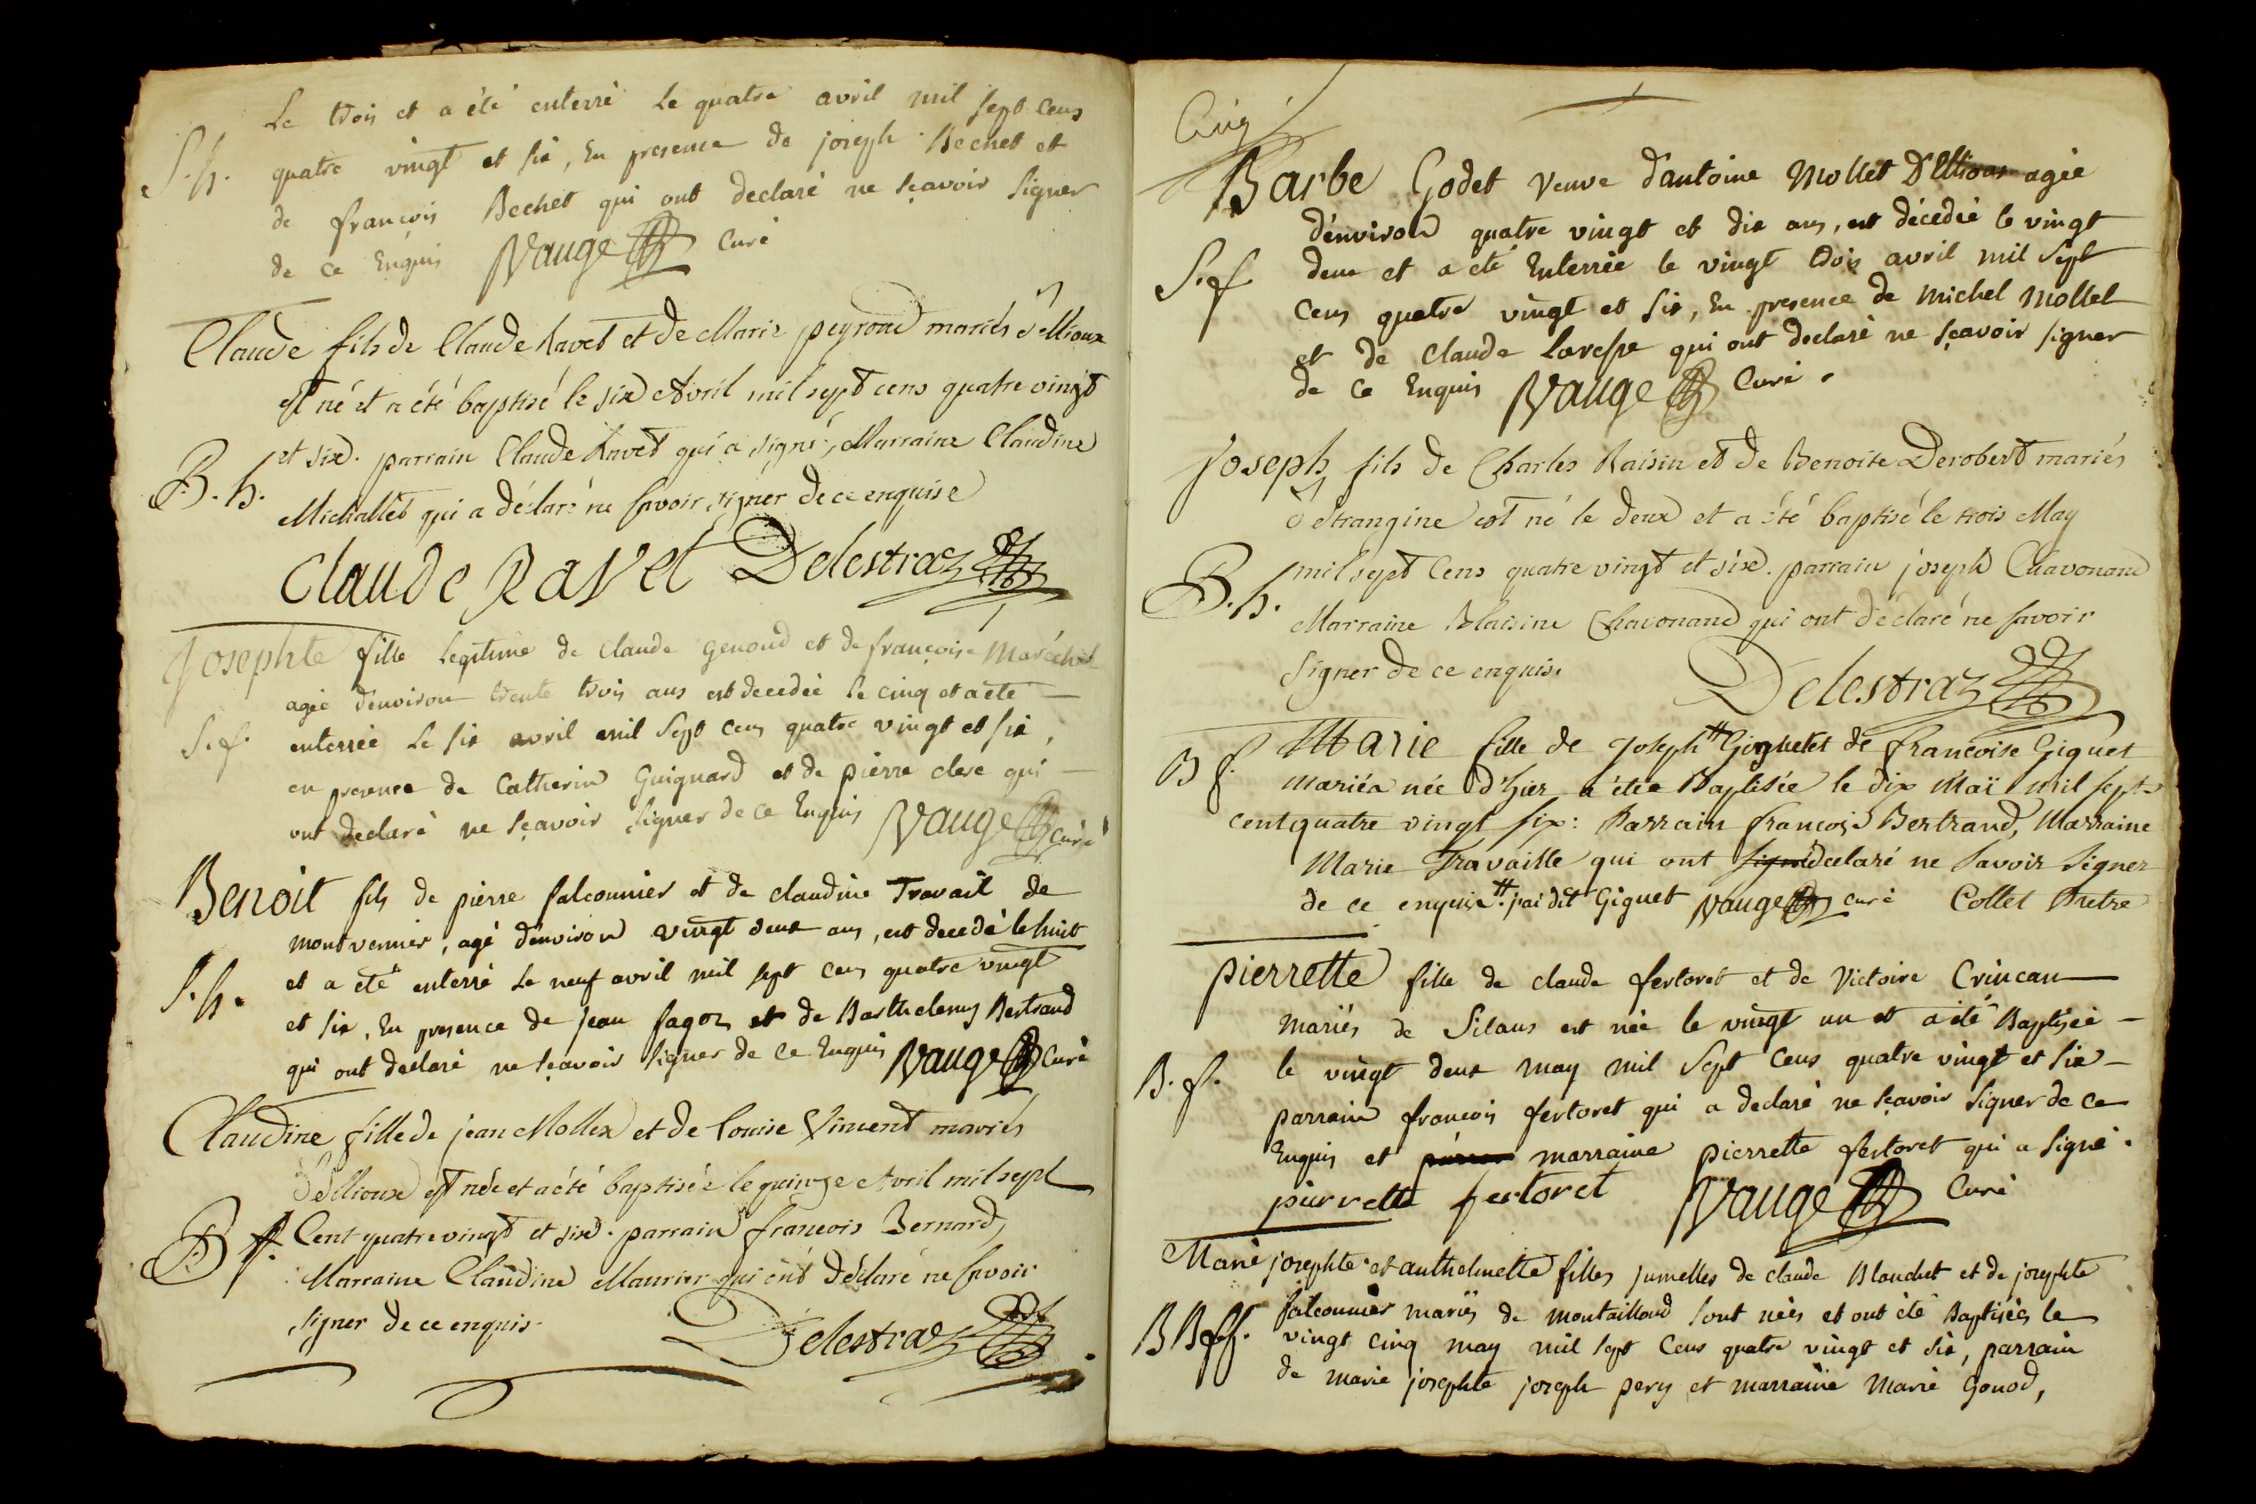 Le trois et a été enterré le quatre avril mil sept cens
S. h. quatre vingt et six, En presence de joseph Bechet et
de françois Bechet qui ont declaré ne sçavoir signer
de ce Enquis Vauge Curé
Claude fils de Claude Ravet et de Marie peyroud mariés d'Ettioux
est né et a été baptisé le six Avril mil sept cens quatre vingt
et six. parrain Claude Ravet qui a signé, Marraine Claudine
B. h. Michallet qui a déclaré ne savoir signer de ce enquise
Claude Ravet Delestraz
Josephte fille legitime de Claude Genoud et de françoise Maréchal
agée d'environ trente trois ans est decedée le cinq et a été
S. f. enterrée le six avril mil sept cens quatre vingt et six,
en presence de Catherin Guignard et de pierre clerc qui
ont declaré ne sçavoir signer de ce Enquis Vauge curé
Benoit fils de pierre falconnier et de claudine Travail de
montvernier, agé d'environ vingt deux ans, est decedé le huit
S. h. et a été enterré le neuf avril mil sept cens quatre vingt
et six, En presence de jean fagoz et de Barthelemy Bertrand
qui ont declaré ne sçavoir signer de ce Enquis Vauge Curé
Claudine fille de jean Mollex et de Louise Vincent mariés
d'Ettioux est née et a été baptisée le quinze Avril mil sept
B f. Cent quatre vingt et six. parrain françois Bernard,
Marraine Claudine Maurier qui ont déclaré ne savoir
signer de ce enquis. Delestraz
Cinq
Barbe Godet veuve d'antoine Mollet D'Ettioux agée
d'environ quatre vingt et dix ans, est décedée le vingt
S. f. deux et a été Enterrée le vingt trois avril mil sept
cens quatre vingt et six, En presence de michel Mollet
et de Claude qui ont declaré ne sçavoir signer
de ce Enquis Vauge Curé.
joseph fils de Charles Raisin et de Benoite Derobert mariés
d'étrangine est né le deux et a été baptisé le trois May
B. h. mil sept Cens quatre vingt et six. parrain joseph Chavonand
Marraine Blaisine Chavonand qui ont déclaré ne savoir
signer de ce enquis. Delestraz
B f. Marie fille de Joseph # Giguet et de françoise Giguet
mariéa née d'hier a étée Baptisée le dix Maï mil sept
cent quatre vingt six: Parrain françois Bertrand, Marraine
Marie Travaille qui ont signé declaré ne savoir signer
de ce enquis. # j'ai dit Giguet Vauge curé Collet Pretre
pierrette fille de claude fertoret et de Victoire Crincau
mariés de Silans est née le vingt un et a été Baptisée
B. f. le vingt deux may mil sept cens quatre vingt et six
parrain françois fertoret qui a declaré ne sçavoir signer de ce
Enquis et marraine pierrette fertoret qui a signé.
pierrette fertoret Vauge Curé
Marie josephte et anthelmette filles jumelles de claude Blanchet et de josephte
falconnier mariés de montailloud sont nées et ont été Baptisées le
BB ff. vingt cinq may mil sept cens quatre vingt et six, parrain
de marie josephte joseph pery et marraine Marie Gonod,